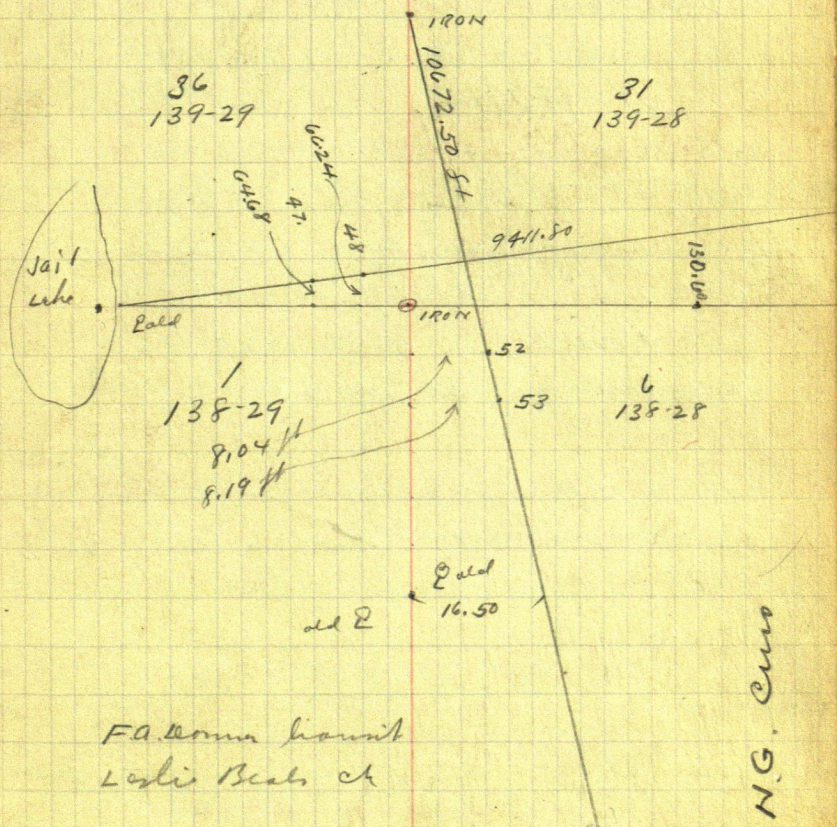 IRON
36
139-29
31
139-28
10672.50 ft
66.24
64.68
47.
48
9411.80
130.60
Jail
Lake
old
IRON
52
53
1
138-29
6
138-28
8.04 ft
8.19 ft
old
16.50
old
F.A.
transit
Leslie Beals ch
N.G.